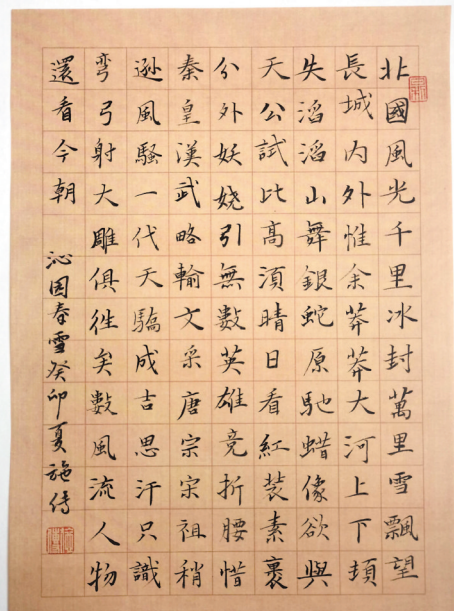 北國風光千里冰封萬里雪飄望
長城内外惟余莽莽大河上下頓
失滔滔山舞銀蛇原馳蜡像欲與
天公試比高須晴日看紅裝素裹
分外妖娆引無數英雄竞折腰惜
秦皇漢武略輸文采唐宗宋祖稍
逊風騷一代天驕成吉思汗只識
弯弓射大雕俱往矣數風流人物
還看今朝
沁园春雪癸卯夏施传